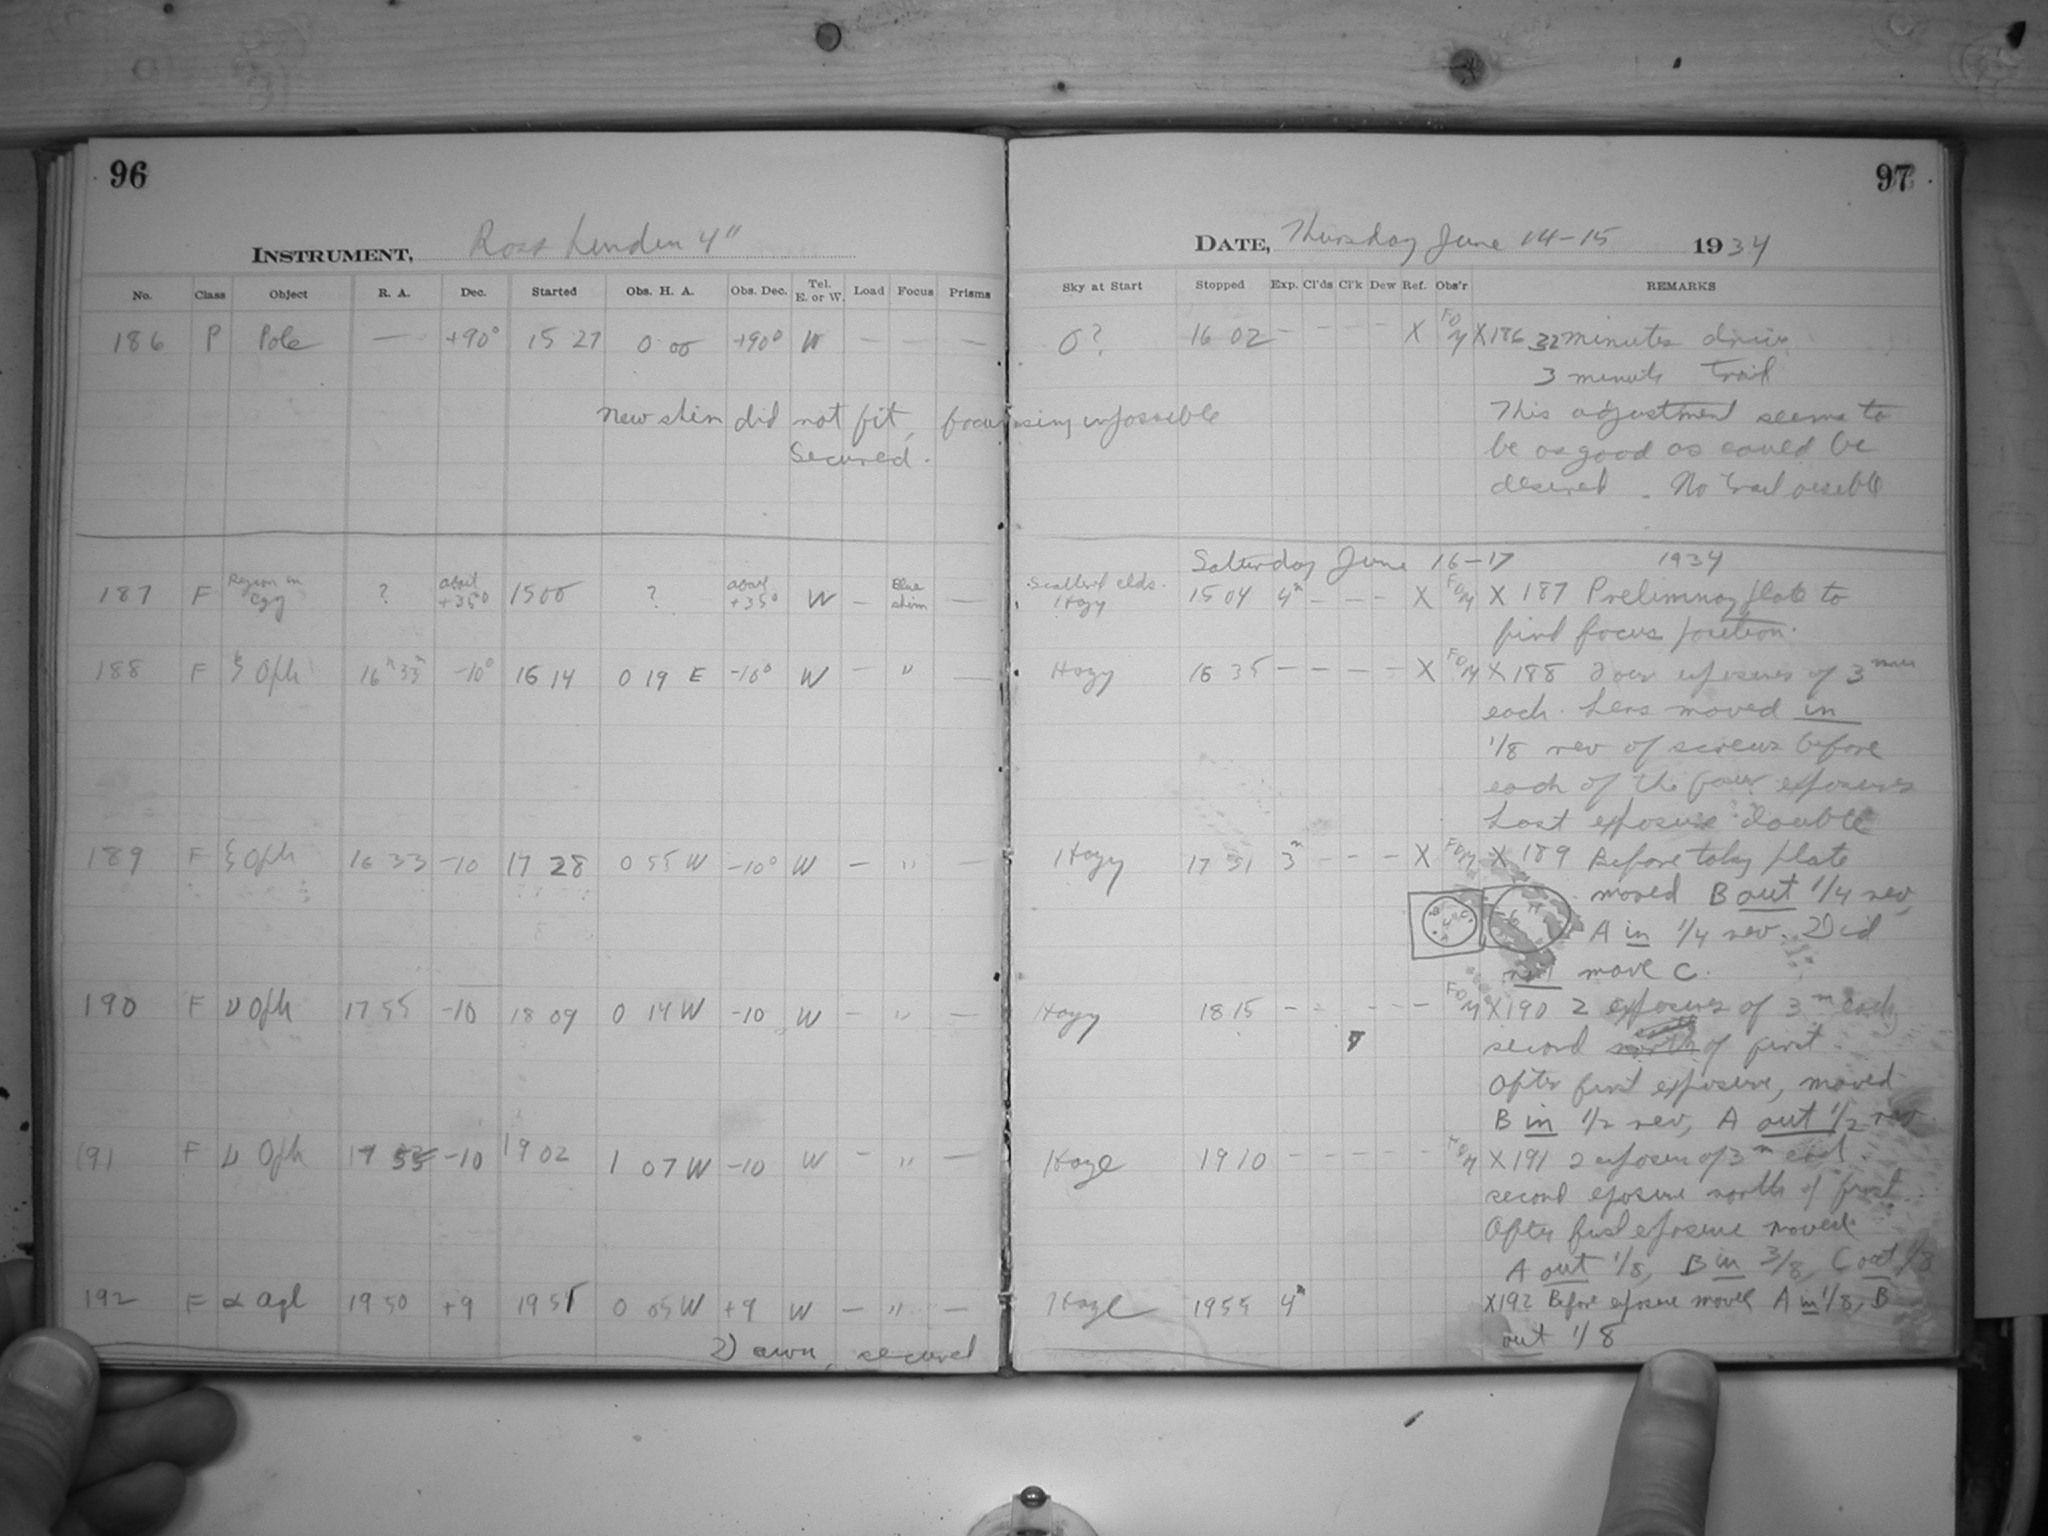 96
INSTRUMENT, Ross Lundin 4"
No. Class Object R. A. Dec. Started Obs. H. A. Obs. Dec. Tel. E. or W. Load Focus Prisms
186 P Pole — +90° 15 27 0 00 +90° W — — —
New shim did not fit, focussing impossible
Secured.
187 F Region in Cyg ? about +35° 15 00 ? about +35° W — Blue shim —
188 F ξ Oph 16h 33m -10° 16 14 0 19 E -10° W — " —
189 F ξ Oph 16 33 -10 17 28 0 55 W -10° W — " —
190 F ν Oph 17 55 -10 18 09 0 14 W -10 W — " —
191 F ν Oph 17 55 -10 19 02 1 07 W -10 W — " —
192 F α Aql 19 50 +9 19 51 0 05 W +9 W — " —
Dawn, secured
97
DATE, Thursday June 14-15 1934
Sky at Start Stopped Exp. Cl'ds Cl'k Dew Ref. Obs'r REMARKS
σ? 16 02 — — — — X X186 32 minutes drive
3 minute trail
This adjustment seems to
be as good as could be
desired. No trail visible
Saturday June 16-17 1934
Scattered clds. Hazy 15 04 4m — — — X X 187 Preliminary plate to
find focus position.
Hazy 16 35 — — — — X X 188 Four exposures of 3 min
each. Lens moved in
1/8 rev of screws before
each of the four exposures
Last exposure double
Hazy 17 31 3m — — — X X 189 Before taking plate
moved B out 1/4 rev,
A in 1/4 rev. Did
not move C.
Hazy 18 15 — — — — — X190 2 exposures of 3m each
second north of first
After first exposure, moved
B in 1/2 rev, A out 1/2 rev
Haze 19 10 — — — — — X191 2 exposures of 3m each
second exposure north of first
After first exposure moved
A out 1/8, B in 3/8, C out 1/8
Haze 19 55 4m X192 Before exposure moved A in 1/8, B
out 1/8